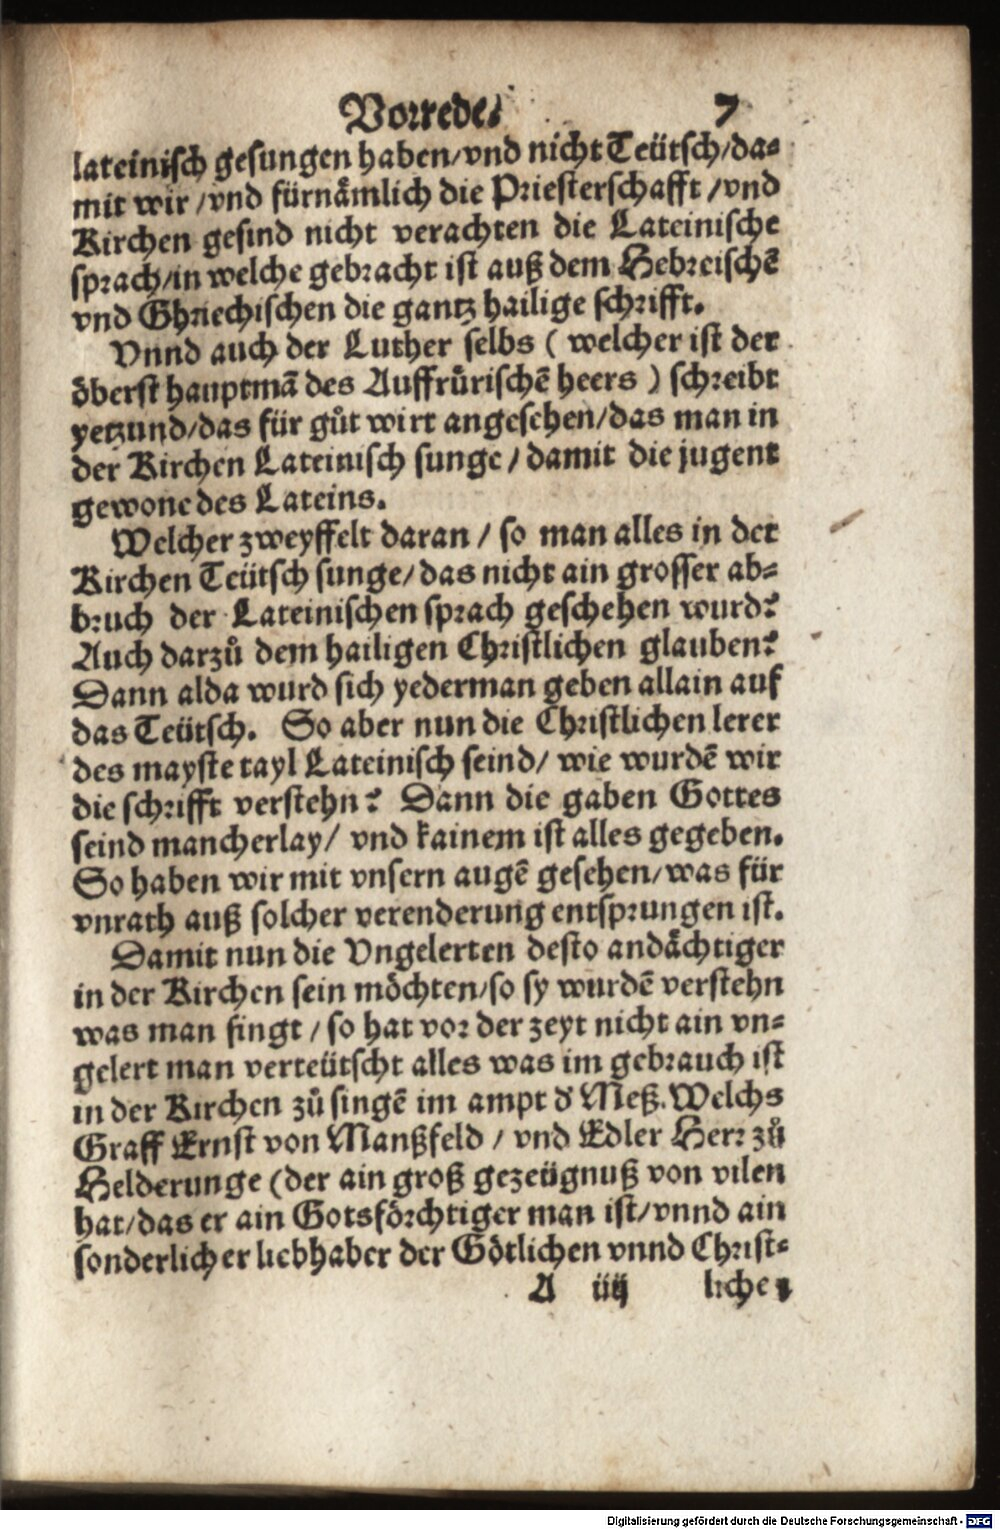 Vorrede. 7
lateinisch gesungen haben/vnd nicht Teütsch/da-
mit wir/vnd fürnämlich die Priesterschafft/vnd
Kirchen gesind nicht verachten die Lateinische
sprach/in welche gebracht ist auß dem Hebreischẽ
vnd Ghriechischen die gantz hailige schrifft.
Vnnd auch der Luther selbs ( welcher ist der
öberst hauptmã des Auffrůrischẽ heers ) schreibt
yetzund/das für gůt wirt angesehen/das man in
der Kirchen Lateinisch sunge/damit die jugent
gewone des Lateins.
Welcher zweyffelt daran/so man alles in der
Kirchen Teütsch sunge/das nicht ain grosser ab-
bruch der Lateinischen sprach geschehen wurd?
Auch darzů dem hailigen Christlichen glauben?
Dann alda wurd sich yederman geben allain auf
das Teütsch. So aber nun die Christlichen lerer
des mayste tayl Lateinisch seind/ wie wurdẽ wir
die schrifft verstehn? Dann die gaben Gottes
seind mancherlay/ vnd kainem ist alles gegeben.
So haben wir mit vnsern augẽ gesehen/was für
vnrath auß solcher verenderung entsprungen ist.
Damit nun die Vngelerten desto andächtiger
in der Kirchen sein möchten/so sy wurdẽ verstehn
was man singt/so hat vor der zeyt nicht ain vn-
gelert man verteütscht alles was im gebrauch ist
in der Kirchen zů singẽ im ampt đ Meß. Welchs
Graff Ernst von Manßfeld / vnd Edler Herr zů
Helderunge (der ain groß gezeügnuß von vilen
hat/das er ain Gotsförchtiger man ist/vnnd ain
sonderlicher liebhaber der Götlichen vnnd Christ-
A iiij liche,
Digitalisierung gefördert durch die Deutsche Forschungsgemeinschaft - DFG